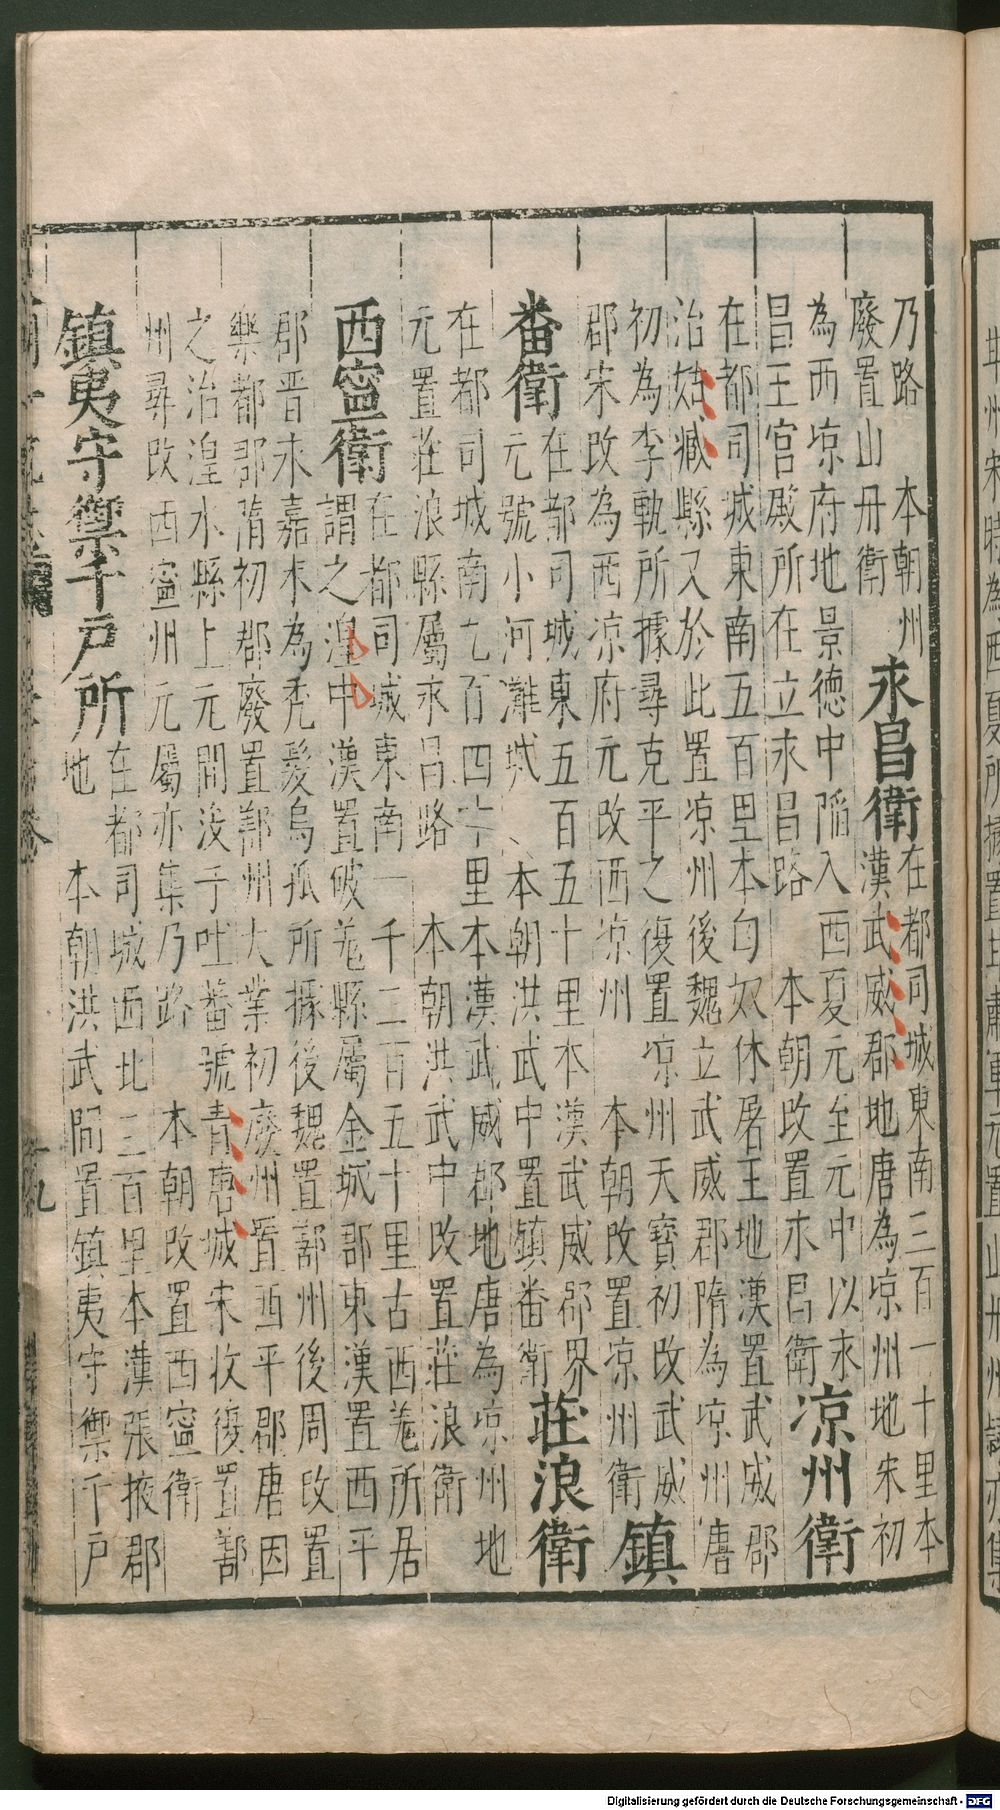 乃路　本朝州
廢置山丹衛
永昌衛
在都司城東南三百一十里本
漢武威郡地唐為凉州地宋初
為西凉府地景德中陷入西夏元至元中以永
昌王宮殿所在立永昌路　本朝改置永昌衛
凉州衛
在都司城東南五百里本匈奴休屠王地漢置武威郡
治姑臧縣又於此置凉州後魏立武威郡隋為凉州唐
初為李軌所據尋克平之復置凉州天寶初改武威
郡宋改為西凉府元改西凉州　本朝改置凉州衛
鎮
番衛
在都司城東五百五十里本漢武威郡界
元號小河灘城　本朝洪武中置鎮番衛
莊浪衛
在都司城南九百四十里本漢武威郡地唐為凉州地
元置莊浪縣屬永昌路　本朝洪武中改置莊浪衛
西寧衛
在都司城東南一千二百五十里古西羗所居
謂之湟中漢置破羗縣屬金城郡東漢置西平
郡晉永嘉末為禿髮烏孤所據後魏置鄯州後周改置
樂都郡隋初郡廢置鄯州大業初廢州置西平郡唐因
之治湟水縣上元間没于吐蕃號青唐城宋收復置鄯
州尋改西寧州元屬亦集乃路　本朝改置西寧衛
鎮夷守禦千戶所
在都司城西北三百里本漢張掖郡
地　本朝洪武間置鎮夷守禦千戶
十九
Digitalisierung gefördert durch die Deutsche Forschungsgemeinschaft - DFG